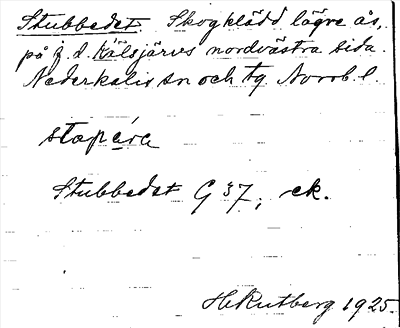 Stubbedet. Skogklädd lägre ås,
på f. d. Kälsjärvs nordvästra sida.
Nederkalix sn och tg Norrb. l.
stapára
Stubbedet G 37, ek.
H Rutberg 1925.